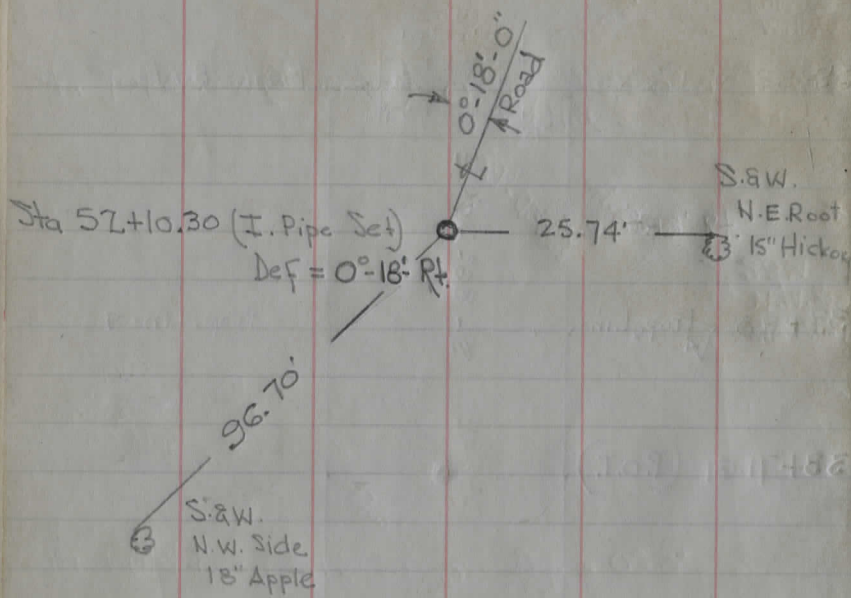 0°-18'-0"
Road
S.&W.
N.E. Root
15" Hickory
Sta 52+10.30 (I. Pipe Set)
25.74'
Def = 0°-18' Rt.
96.70'
S.&W.
N.W. Side
18" Apple